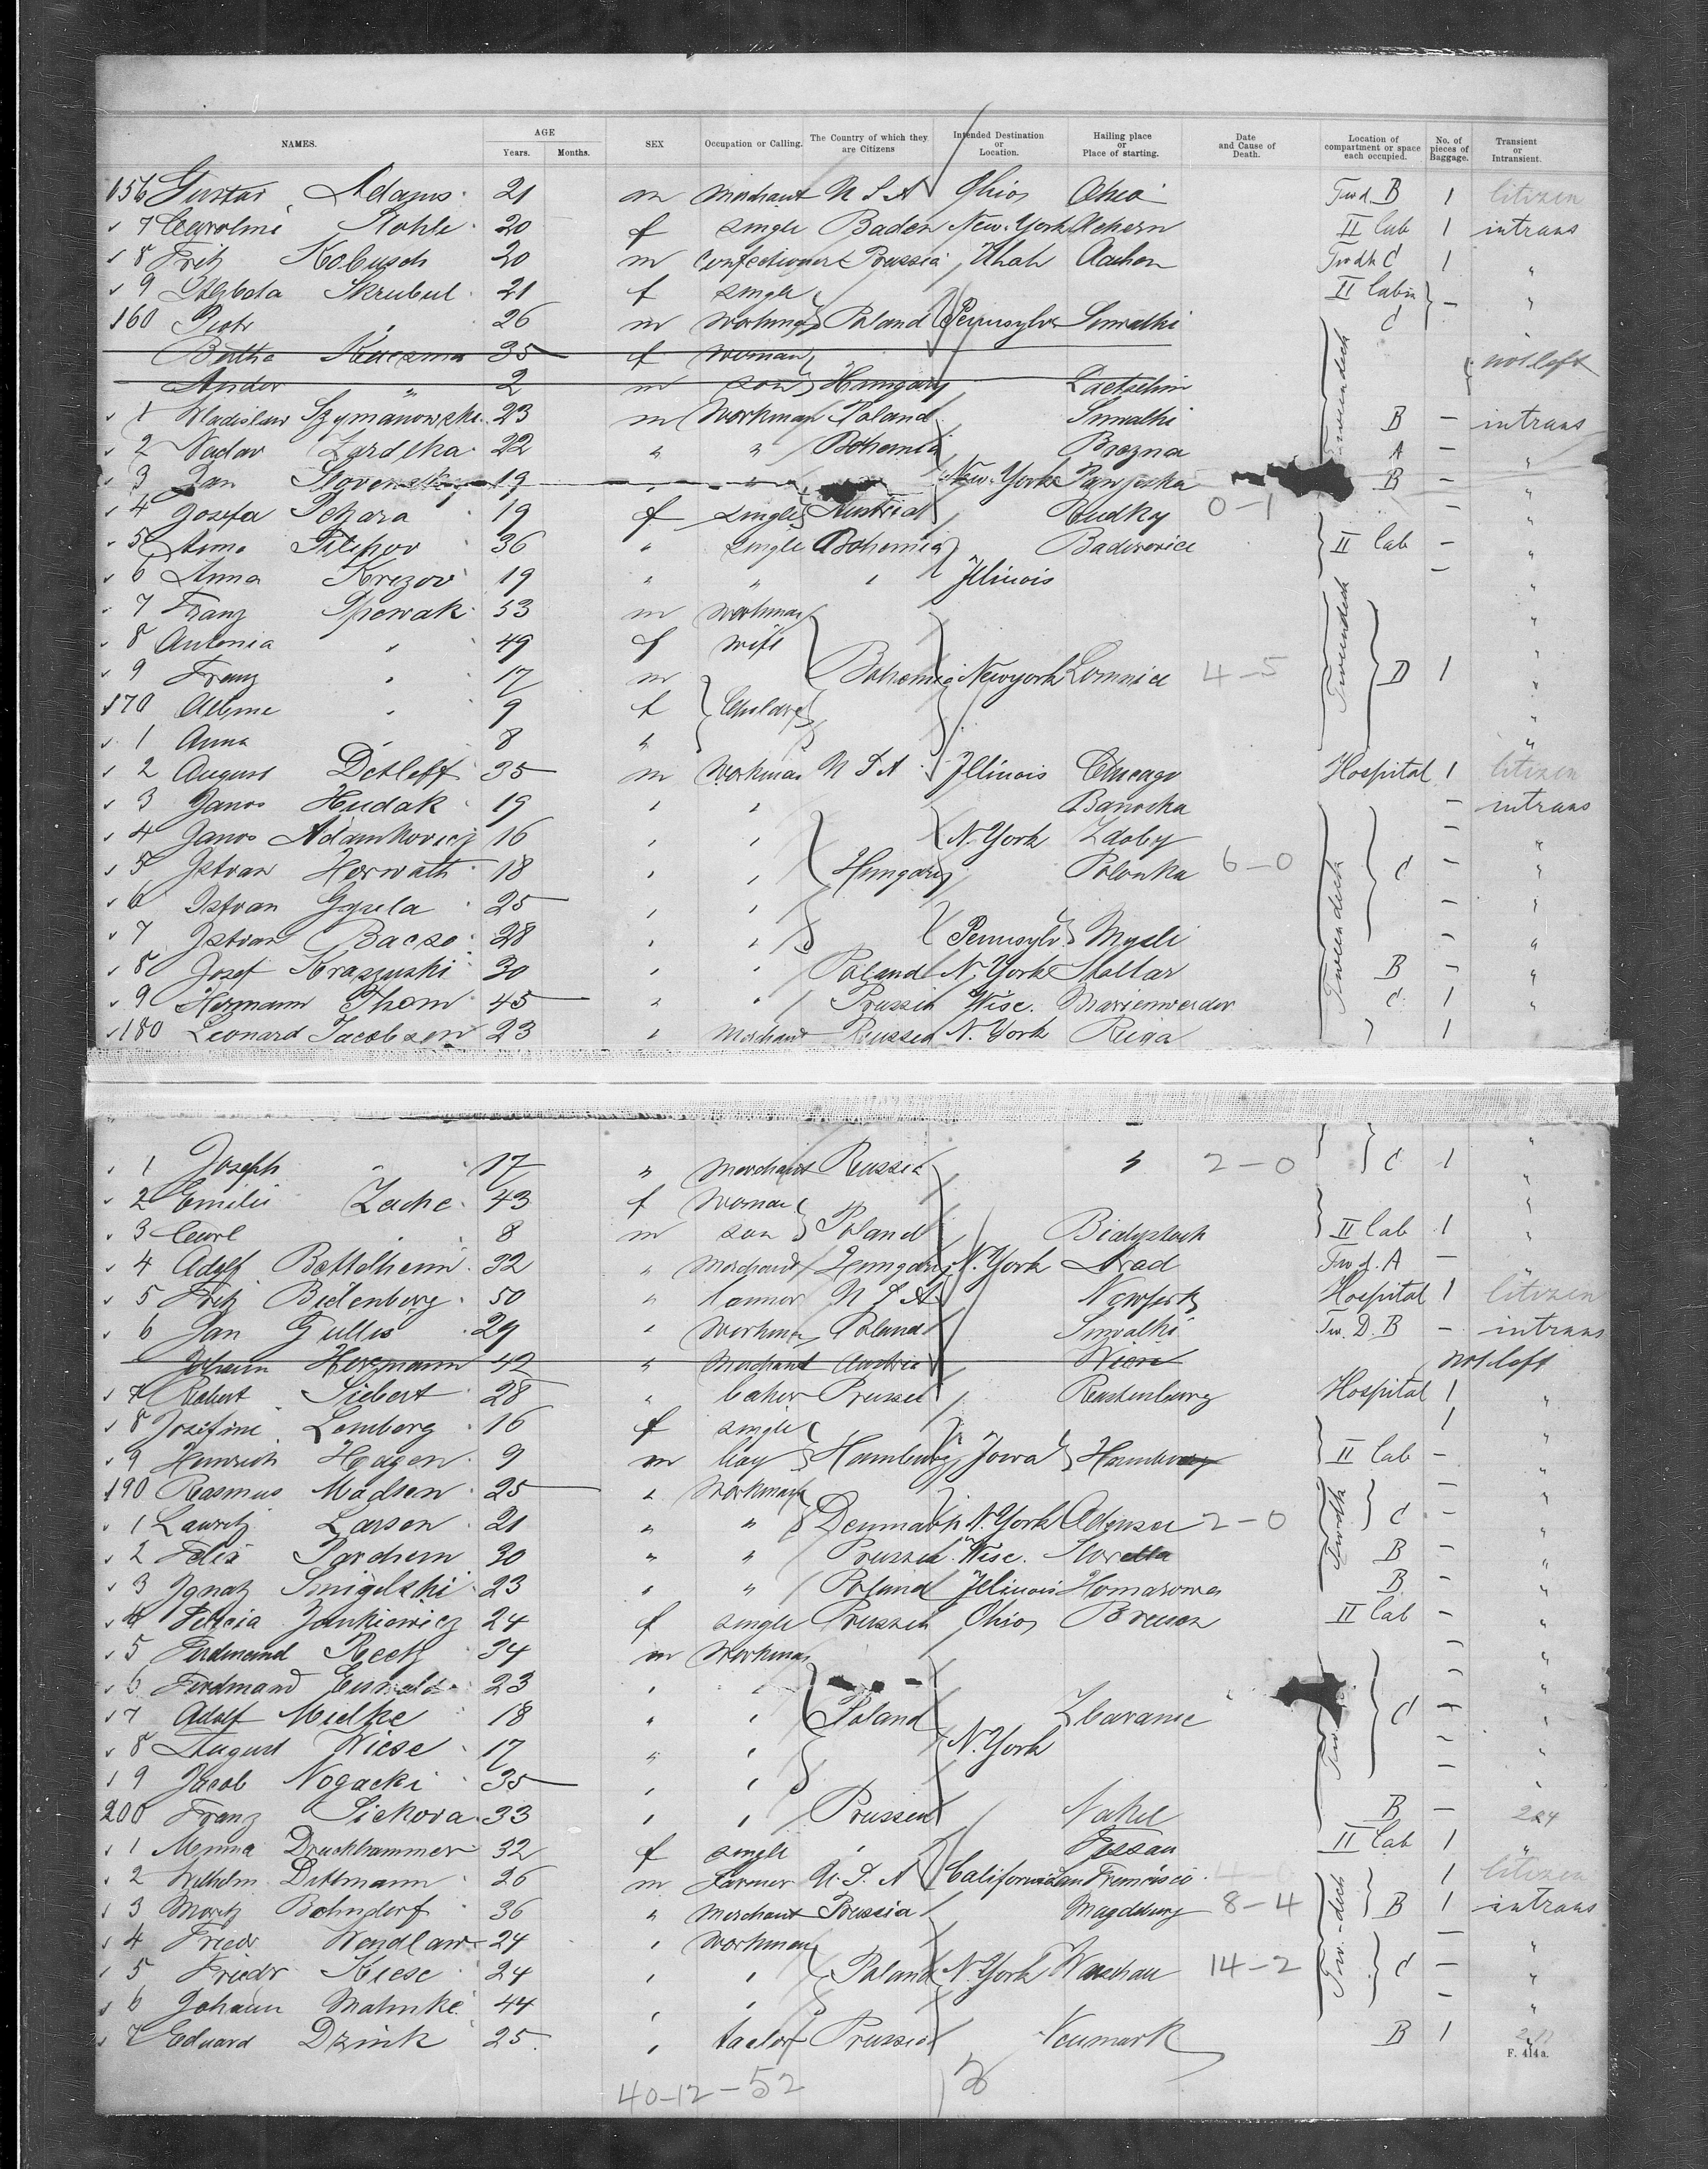 NAMES. AGE Years. Months. SEX Occupation or Calling. The Country of which they are Citizens Intended Destination or Location. Hailing place or Place of starting. Date and Cause of Death. Location of compartment or space each occupied. No. of pieces of Baggage. Transient or Intransient.
156 Gustav Adams 21 m Merchant U S A Ohio Ohio Twd. B 1 Citizen
7 Caroline Kohle 20 f single Baden New-York Achern II Cab 1 intrans
8 Fritz Kobusch 20 m Confectioner Prussia Utah Aachen Twdk C 1 "
9 Skrubul 21 f single II Cabin - "
160 Piotr " 26 m Workman Poland Pennsylv Suwalki C "
Bertha Kuczma 35 f woman not left
Andor " 2 m son Hungary
1 Wladislaw Szymanowski 23 m Workman Poland Suwalki B - intrans
2 22 " " Bohemia Brezna A - "
3 Jan 19 " New-York B - "
4 Josefa 19 f single Austria Rudky 0-1 - "
5 Anna 36 " single Bohemia II Cab - "
6 Anna Krizov 19 " " " Illinois - "
7 Franz Spewak 53 m Workman "
8 Antonia " 49 f wife "
9 Franz " 17 m Bohemia New york Lomnice 4-5 Tweendeck D 1 "
170 " 9 f Children "
1 Anna " 8 " "
2 August Detleff 35 m Workman U S A Illinois Chicago Hospital 1 Citizen
3 Janos Hudak 19 " " Banocka - intrans
4 Janos Adamkovicz 16 " " N. York Zdoby - "
5 Istvan Horwath 18 " " Hungary Polonka 6-0 Tween deck C - "
6 Istvan Gysela 25 " " - "
7 Istvan Bacso 28 " " Pennsylv Mysli - "
8 Josef Kraszuski 30 " " Poland N. York B - "
9 Hermann Thom 45 " " Prussia Wisc. Marienwerder C 1 "
180 Leonard Jacobson 23 " Merchant Russia N. York Riga 1
1 Joseph " 17 " Merchant Russia " 2-0 C 1 "
2 Emilie Zache 43 f Woman "
3 Carl " 8 m son Poland Bialystock II Cab 1 "
4 Adolf Bettelheim 32 " Merchant Hungary N. York Arad Tw d. A - "
5 Fritz Bidenberg 50 " U S A New York Hospital 1 Citizen
6 Jan Gullis 29 " Workman Poland Suwalki Tw. D. B - intrans
Johann Hermann 42 " Merchant Austria Wien not left
7 Robert Siebert 28 " baker Prussia Rastenburg Hospital 1 "
8 Josefine Lemberg 16 f single 1 "
9 Heinrich Hagen 9 m boy Hamburg Iowa Hamburg II Cab - "
190 Rasmus Madsen 25 " Workman - "
1 Lauritz Larsen 21 " " Denmark N. York Odense 2-0 Twdk C - "
2 Felix 30 " " Prussia Wisc. B - "
3 Ignatz Smigelski 23 " " Poland Illinois B - "
4 Felicia Jankiewicz 24 f single Prussia Ohio II Cab - "
5 Ferdinand Reetz 34 m Workman - "
6 Ferdinand 23 " " - "
7 Adolf Mielke 18 " " Poland C - "
8 August Wiese 17 " " N. York - "
9 Jacob Nogacki 35 " " - "
200 Franz Sickora 33 " " Prussia Nakel B - 204
1 Minna Druckhammer 32 f single " Dessau II Cab 1 "
2 Wilhelm Dittmann 26 m Farmer U. S. A California San Francisco 1 Citizen
3 Moritz Bohndorf 36 " Merchant Prussia Magdeburg 8-4 B 1 intrans
4 Friedr Wendland 24 " Workman - "
5 Friedr Kiese 24 " " Poland N. York Warschau 14-2 C - "
6 Johann Mahnke 44 " " - "
7 Eduard Dzink 25 " tailor Prussia Neumark B 1 "
F. 414a.
40-12-52